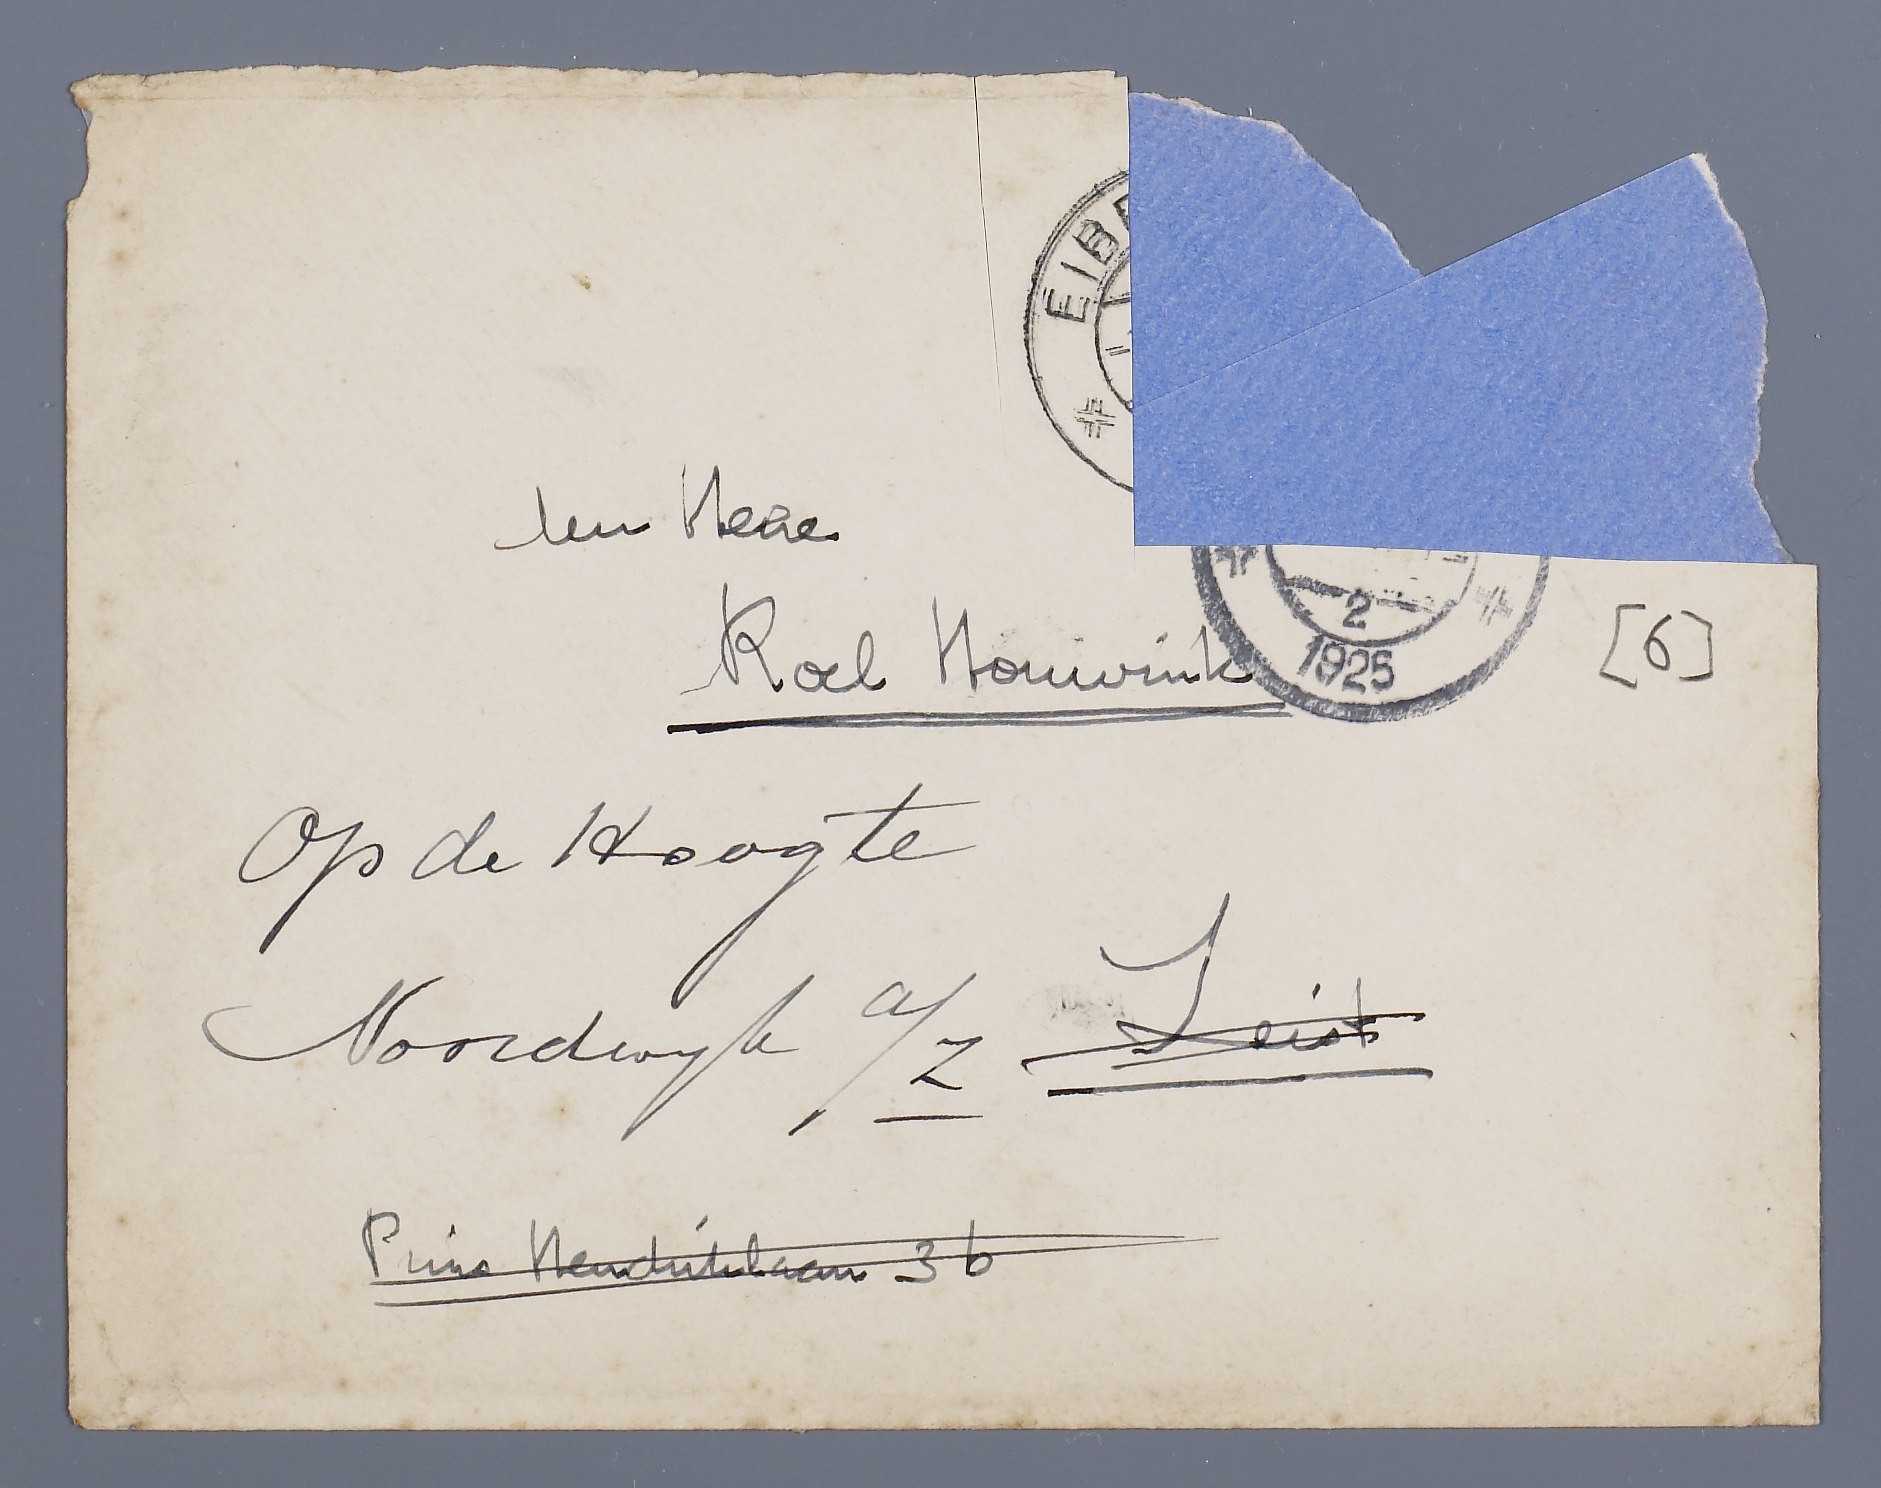 EIBE
den Heer
Roel Houwink
2
1925
[6]
Op de Hoogte
Noordwijk a/Z Zeist
Prins Hendriklaan 36